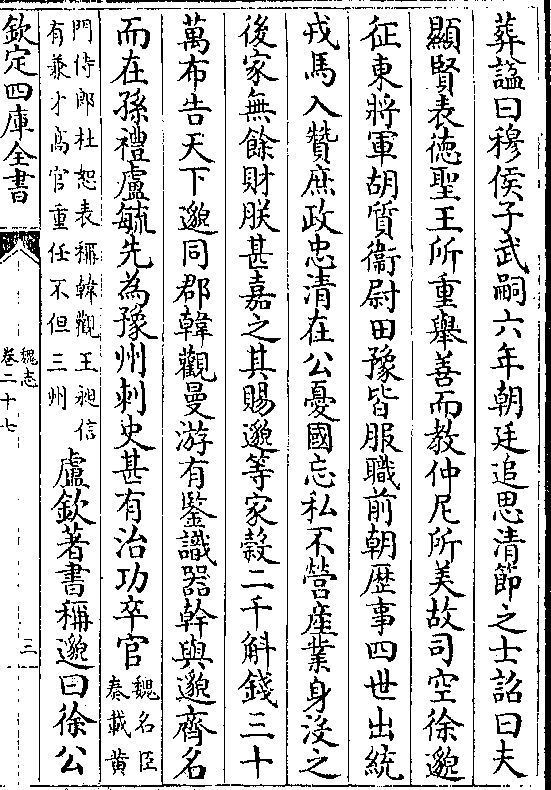 葬諡曰穆侯子武嗣六年朝廷追思清節之士詔曰夫
顯賢表徳聖王所重舉善而教仲尼所美故司空徐邈
征東將軍胡質衞尉田豫皆服職前朝歴事四世出統
戎馬入贊庶政忠清在公憂國忘私不營産業身没之
後家無餘財朕甚嘉之其賜邈等家穀二千斛錢三十
萬布告天下邈同郡韓觀曼游有鍳識器幹與邈齊名
而在孫禮盧毓先為豫州刺史甚有治功卒官
魏名臣
奏載黄
門侍郎杜恕表稱韓觀王昶信
有兼才高官重任不但三州
盧欽著書稱邈曰徐公
欽定四庫全書
魏志
卷二十七
三